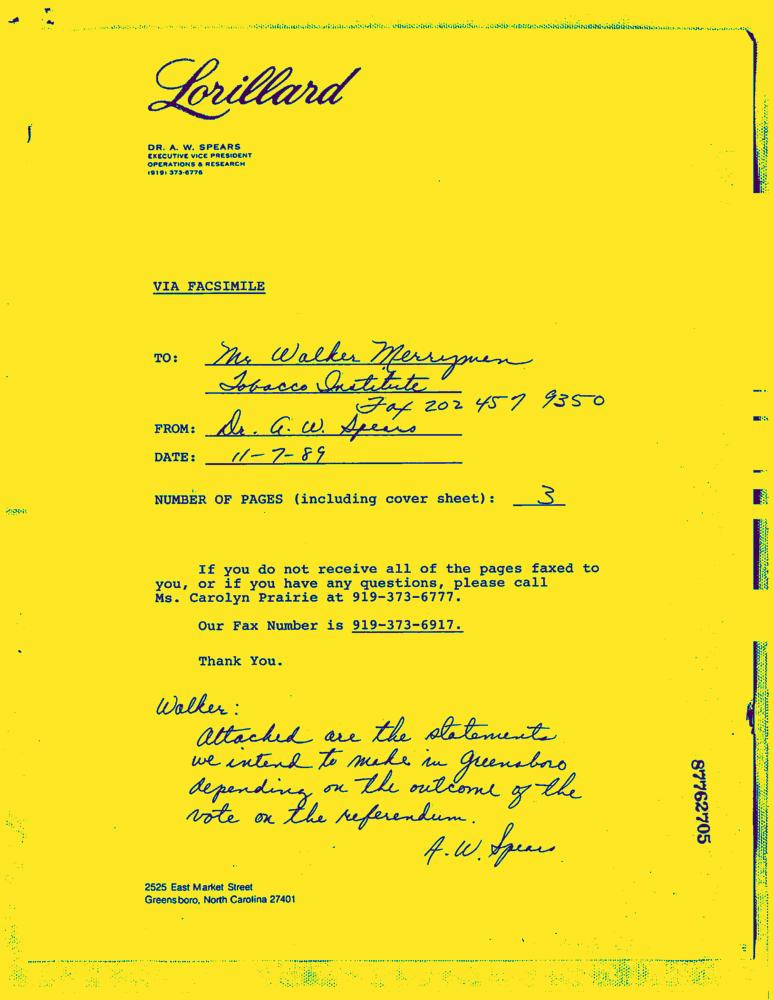 Lorillard
DR. A. W. SPEARS
EXECUTIVE VICE PRESIDENT
OPERATIONS & RESEARCH
(919) 373-6776
VIA FACSIMILE
TO: Mr Walker Merryman
Tobacco Institute
Fax 202 457 9350
FROM: Dr. A. W. Spears
DATE: 11-7-89
NUMBER OF PAGES (including cover sheet): 3
If you do not receive all of the pages faxed to
you, or if you have any questions, please call
Ms. Carolyn Prairie at 919-373-6777.
Our Fax Number is 919-373-6917.
Thank You.
Walker:
Attached are the statements
we intend to make in Greensboro
depending on the outcome of the
vote on the referendum.
A. W. Spears
87762705
2525 East Market Street
Greensboro, North Carolina 27401